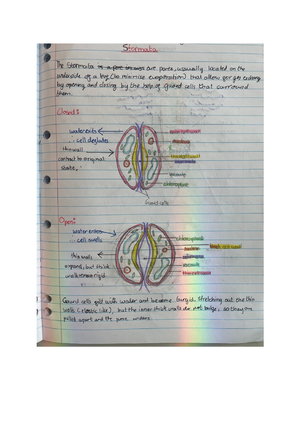 Stomata
The Stomata are pores, usually located on the
underside of a leaf (to minimise evaporation) that allow for gas exchange
by opening and closing by the help of guard cells that surround
them.
Closed:
water exits
∴ cell deflates
thin wall
contract to original
shape
vacuole
chloroplast
Guard cells
Open:
water enters
∴ cell swells
thin walls
expand, but thick
walls remain rigid
chloroplast
Guard cells fill with water and become turgid, stretching out the thin
walls (elastic like), but the inner thick walls do not budge, so they are
pulled apart and the pore widens.